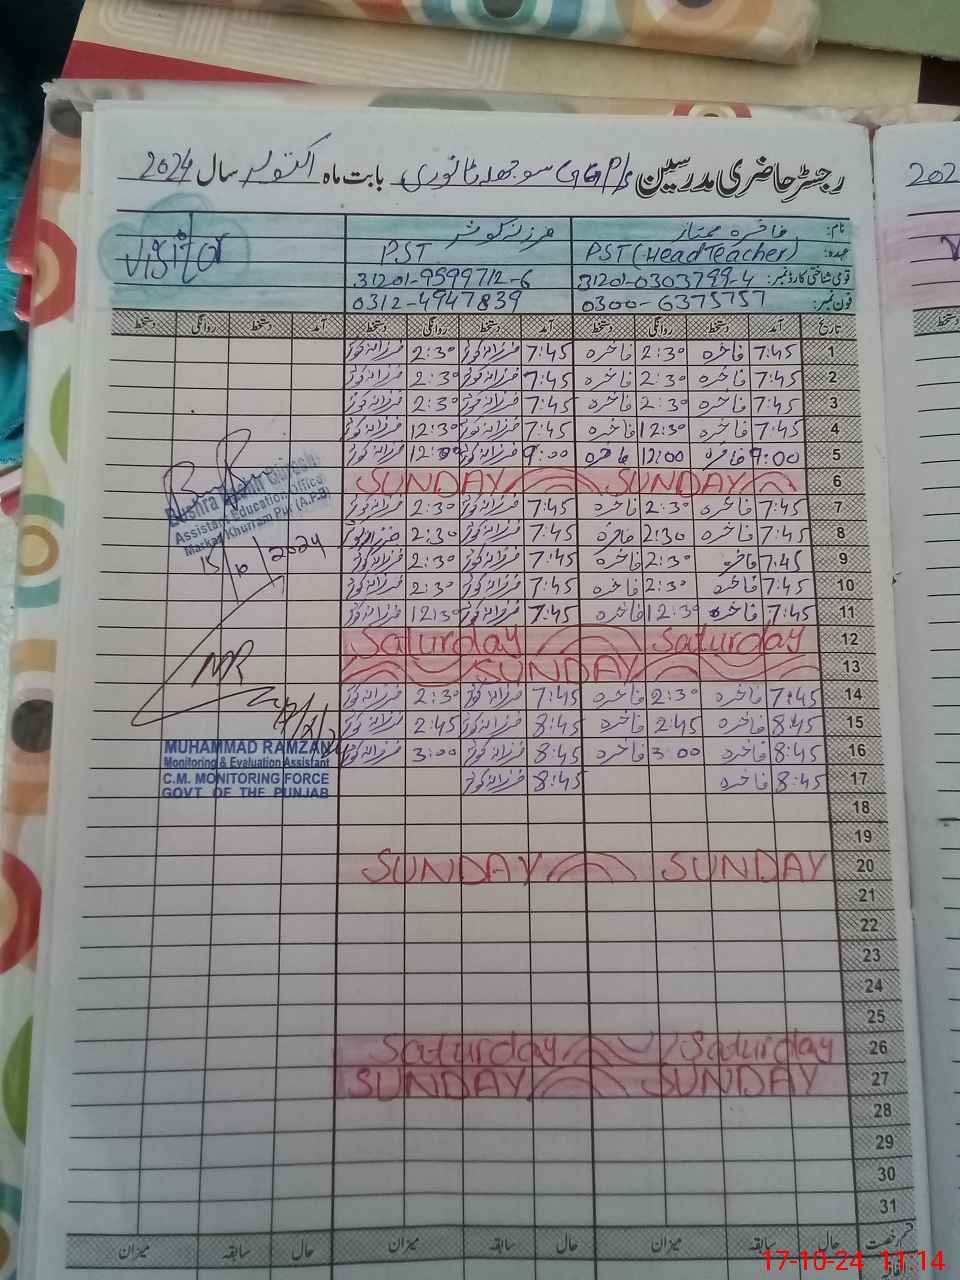 رجسٹر حاضری مدرسین GGPS سوجھلا ثانوری بابت ماہ اکتوبر سال 2024
نام: فاخرہ ممتاز فرزانہ کوثر Visitor
عہدہ: PST (Head Teacher) PST
قومی شناختی کارڈ نمبر: 31201-0303799-4 31201-9599712-6
فون نمبر: 0300-6375757 0312-4947839
تاریخ آمد دستخط روانگی دستخط آمد دستخط روانگی دستخط آمد دستخط روانگی دستخط
1 7:45 فاخرہ 2:30 فاخرہ 7:45 فرزانہ کوثر 2:30 فرزانہ کوثر
2 7:45 فاخرہ 2:30 فاخرہ 7:45 فرزانہ کوثر 2:30 فرزانہ کوثر
3 7:45 فاخرہ 2:30 فاخرہ 7:45 فرزانہ کوثر 2:30 فرزانہ کوثر
4 7:45 فاخرہ 12:30 فاخرہ 7:45 فرزانہ کوثر 12:30 فرزانہ کوثر
5 9:00 فاخرہ 12:00 فاخرہ 9:00 فرزانہ کوثر 12:00 فرزانہ کوثر
6 SUNDAY SUNDAY
7 7:45 فاخرہ 2:30 فاخرہ 7:45 فرزانہ کوثر 2:30 فرزانہ کوثر
8 7:45 فاخرہ 2:30 فاخرہ 7:45 فرزانہ کوثر 2:30 فرزانہ کوثر
9 7:45 فاخرہ 2:30 فاخرہ 7:45 فرزانہ کوثر 2:30 فرزانہ کوثر
10 7:45 فاخرہ 2:30 فاخرہ 7:45 فرزانہ کوثر 2:30 فرزانہ کوثر
11 7:45 فاخرہ 12:30 فاخرہ 7:45 فرزانہ کوثر 12:30 فرزانہ کوثر
12 Saturday Saturday
13 SUNDAY
14 7:45 فاخرہ 2:30 فاخرہ 7:45 فرزانہ کوثر 2:30 فرزانہ کوثر
15 8:45 فاخرہ 2:45 فاخرہ 8:45 فرزانہ کوثر 2:45 فرزانہ کوثر
16 8:45 فاخرہ 3:00 فاخرہ 8:45 فرزانہ کوثر 3:00 فرزانہ کوثر
17 8:45 فاخرہ 8:45 فرزانہ کوثر
18
19
20 SUNDAY SUNDAY
21
22
23
24
25
26 Saturday Saturday
27 SUNDAY SUNDAY
28
29
30
31
رخصت حال سابقہ میزان حال سابقہ میزان حال سابقہ میزان
Bushra
Assistant Education Officer
Markaz Khurram Pur (A.P.E)
15/10/2024
MR
MUHAMMAD RAMZAN
Monitoring & Evaluation Assistant
C.M. MONITORING FORCE
GOVT OF THE PUNJAB
202
دستخط
17-10-24 11:14